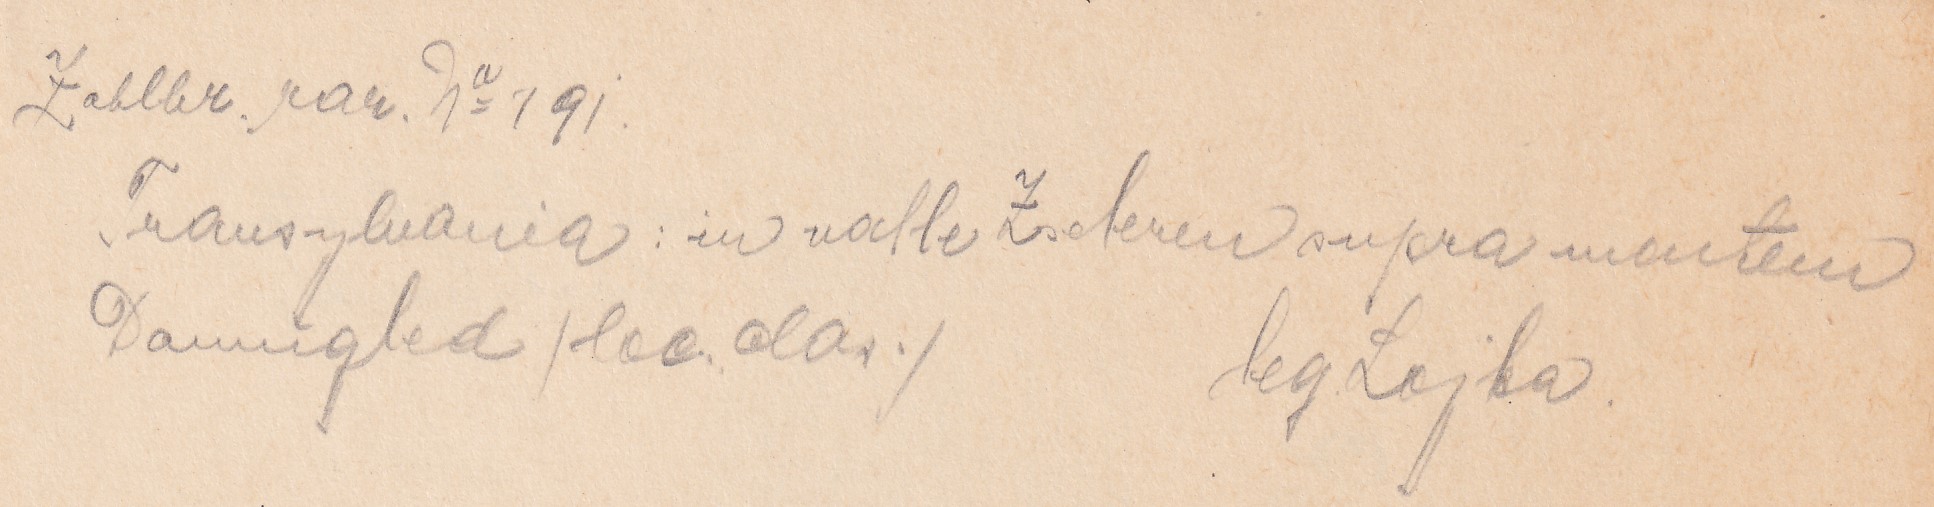 Zahlbr. rar. No 191.
Transylvania: in valle Zscheren supra montem
Domugled /loc. clas./ leg. Lojka.